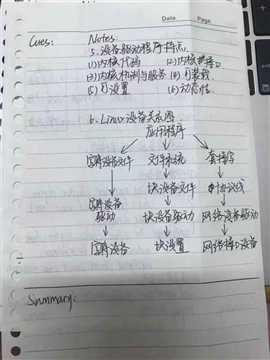 Data Page
Cues: Notes:
5. 设备驱动程序特点
(1) 内核代码 (2) 内核接口
(3) 内核机制与服务 (4) 可装载
(5) 可设置 (6) 动态性
6. Linux设备关系图
应用程序
字符设备文件 文件系统 套接字
块设备文件 协议栈
字符设备驱动 块设备驱动 网络设备驱动
字符设备 块设置 网络接口设备
Summary: